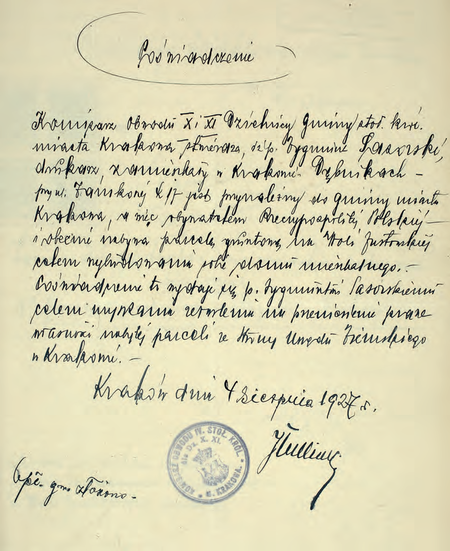 Poświadczenie
Komisarz Obwodu X i XI Dzielnicy Gminy stoł. król.
miasta Krakowa stwierdza, że p. Zygmunt
drukarz, zamieszkały w Krakowie Dębnikach
przy ul. Zamkowej L 17 jest przynależny do gminy miasta
Krakowa, a więc obywatelem Rzeczypospolitej Polskiej
i obecnie nabywa parcelę gruntową na Woli Justowskiej
celem wybudowania sobie domu mieszkalnego.-
Poświadczenie to wydaje się p. Zygmuntowi
celem uzyskania zezwolenia na przeniesienie prawa
własności nabytej parceli ze strony Urzędu Ziemskiego
w Krakowie. —
Kraków dnia 4 sierpnia 1927 r.
KOMISARZ OBWODU IV. STOŁ. KRÓL.
dla Dz. X. XI.
M. KRAKOWA